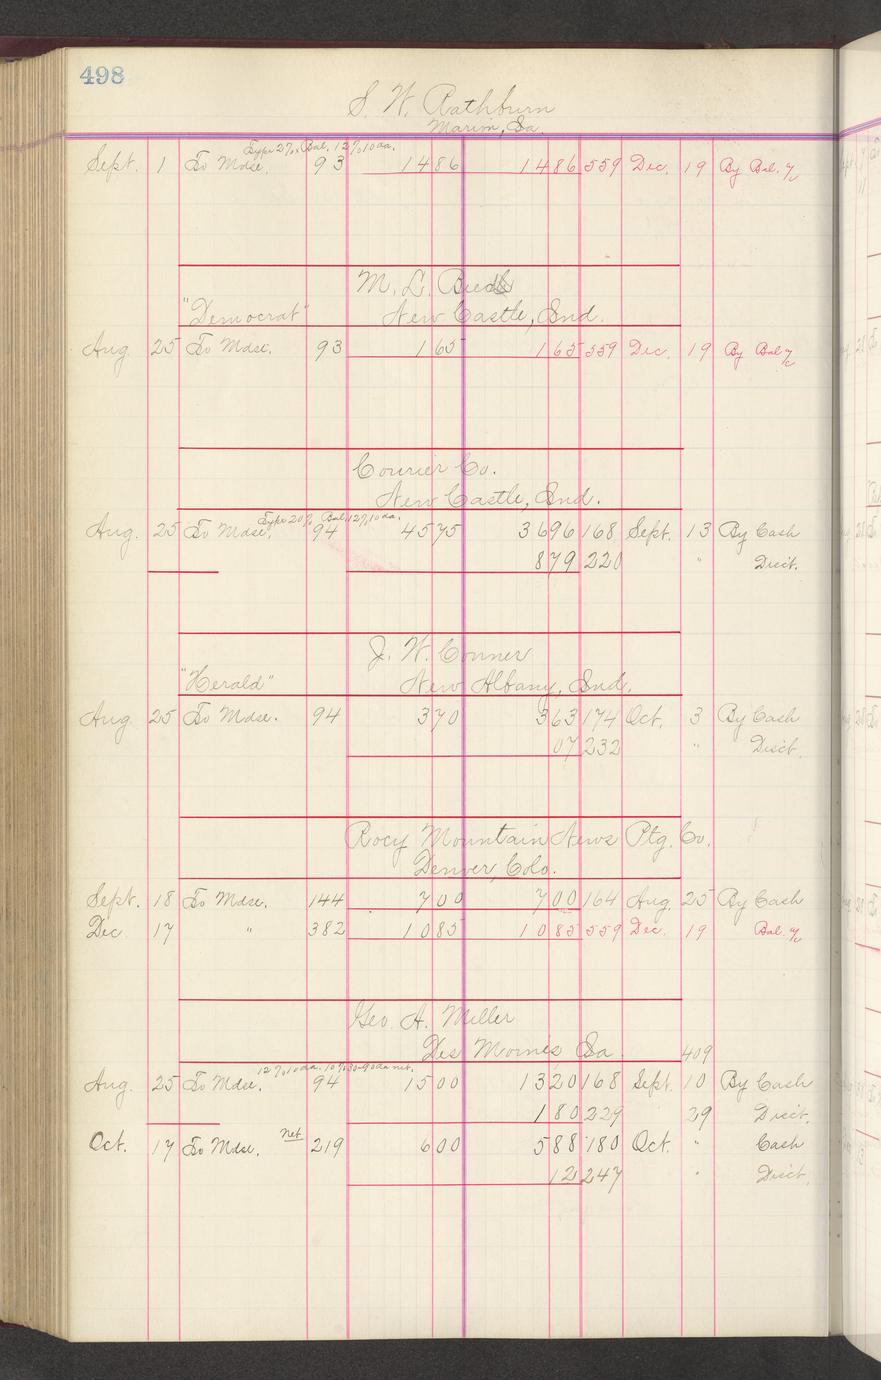 498
S. W. Rathburn
Marion, Ia.
Type 2%, Bal. 12% 10 da.
Sept. 1 To Mdse. 93 1486 1486 559 Dec. 19 By Bal. %
M. L. 
"Democrat" New Castle, Ind.
Aug 25 To Mdse. 93 165 165 559 Dec. 19 By Bal %
Courier Co.
New Castle, Ind.
Type 20% Bal. 12% 10 da.
Aug. 25 To Mdse. 94 4575 3696 168 Sept. 13 By Cash
879 220 " Disc't.
J. W. Conner
"Herald" New Albany, Ind.
Aug 25 To Mdse. 94 370 363 174 Oct. 3 By Cash
07 232 " Disc't.
Rocy Mountain News Ptg. Co.
Denver, Colo.
Sept. 18 To Mdse. 144 700 700 164 Aug. 25 By Cash
Dec 17 " 382 1085 1085 559 Dec. 19 Bal. %
Geo. A. Miller
Des Moines Ia. 409
12% 10 da. 10% 30-90 da net.
Aug. 25 To Mdse. 94 1500 1320 168 Sept. 10 By Cash
180 229 29 Disc't.
Oct. 17 To Mdse. Net 219 600 588 180 Oct. " Cash
12 247 " Disc't.